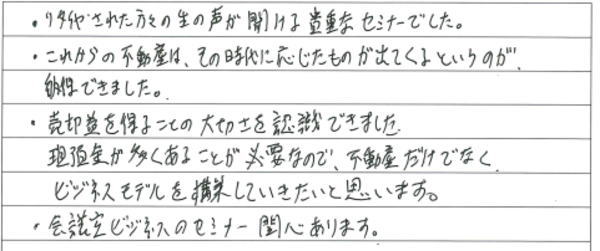 ・リタイヤされた方々の生の声が聞ける貴重なセミナーでした。
・これからの不動産は、その時代に応じたものが出てくるというのが、
納得できました。
・売却益を得ることの大切さを認識できました
現預金が多くあることが必要なので、不動産だけでなく
ビジネスモデルを構築していきたいと思います。
・会議室ビジネスのセミナー関心あります。